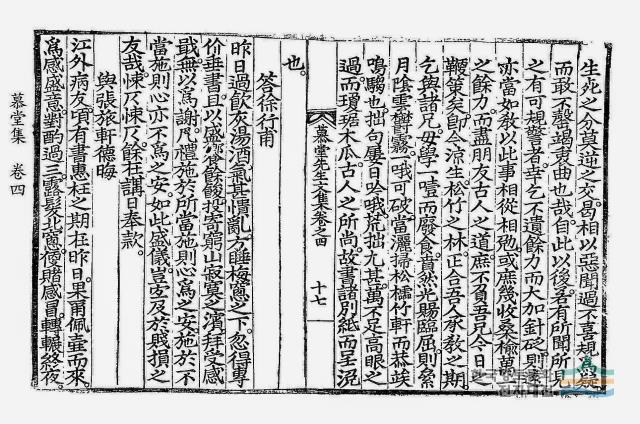 生死之分莫逆之交曷相以惡聞過不喜規爲疑
而敢不罄竭衷曲也哉自此以後若有所聞所見
之有可規警者幸乞不遺餘力而大加針砭則
亦當如敎以此事相從相勉或庶幾收桑楡萬一
之餘力而盡朋友古人之道庶不負吾兄今日之
鞭策矣卽今凉生松竹之林正合吾人承敎之期
乞與諸兄毋學一噎而廢食賁然光賜臨屈則翁
月陰雲鬱霧一哦可破當灑掃松檽竹軒而恭竢
鳴騶也拙句屢日吟哦荒拙尤甚萬不足高眼之
過而瓊琚木瓜古人之所尚故書諸別紙而呈浼
慕堂先生文集卷之四 十七
也
答徐行甫
昨日過飮灰湯酒氣甚憒亂方睡梅窓之下忽得專
价垂書且以盛餐餘餕投寄窮山寂寞之濱拜堂感
戢無以爲謝凡禮施於所當施則心爲之安施於不
當施則心亦不爲之安如此盛儀豈宜及於賤損之
友哉悚仄悚仄餘在講日奉款
與張旅軒德晦
江外病友頃有書惠枉之期在昨日果甫佩壺而來
爲感盛意對酌過三露髮北窓偃賭感冒轉輾終夜
慕堂集 卷四